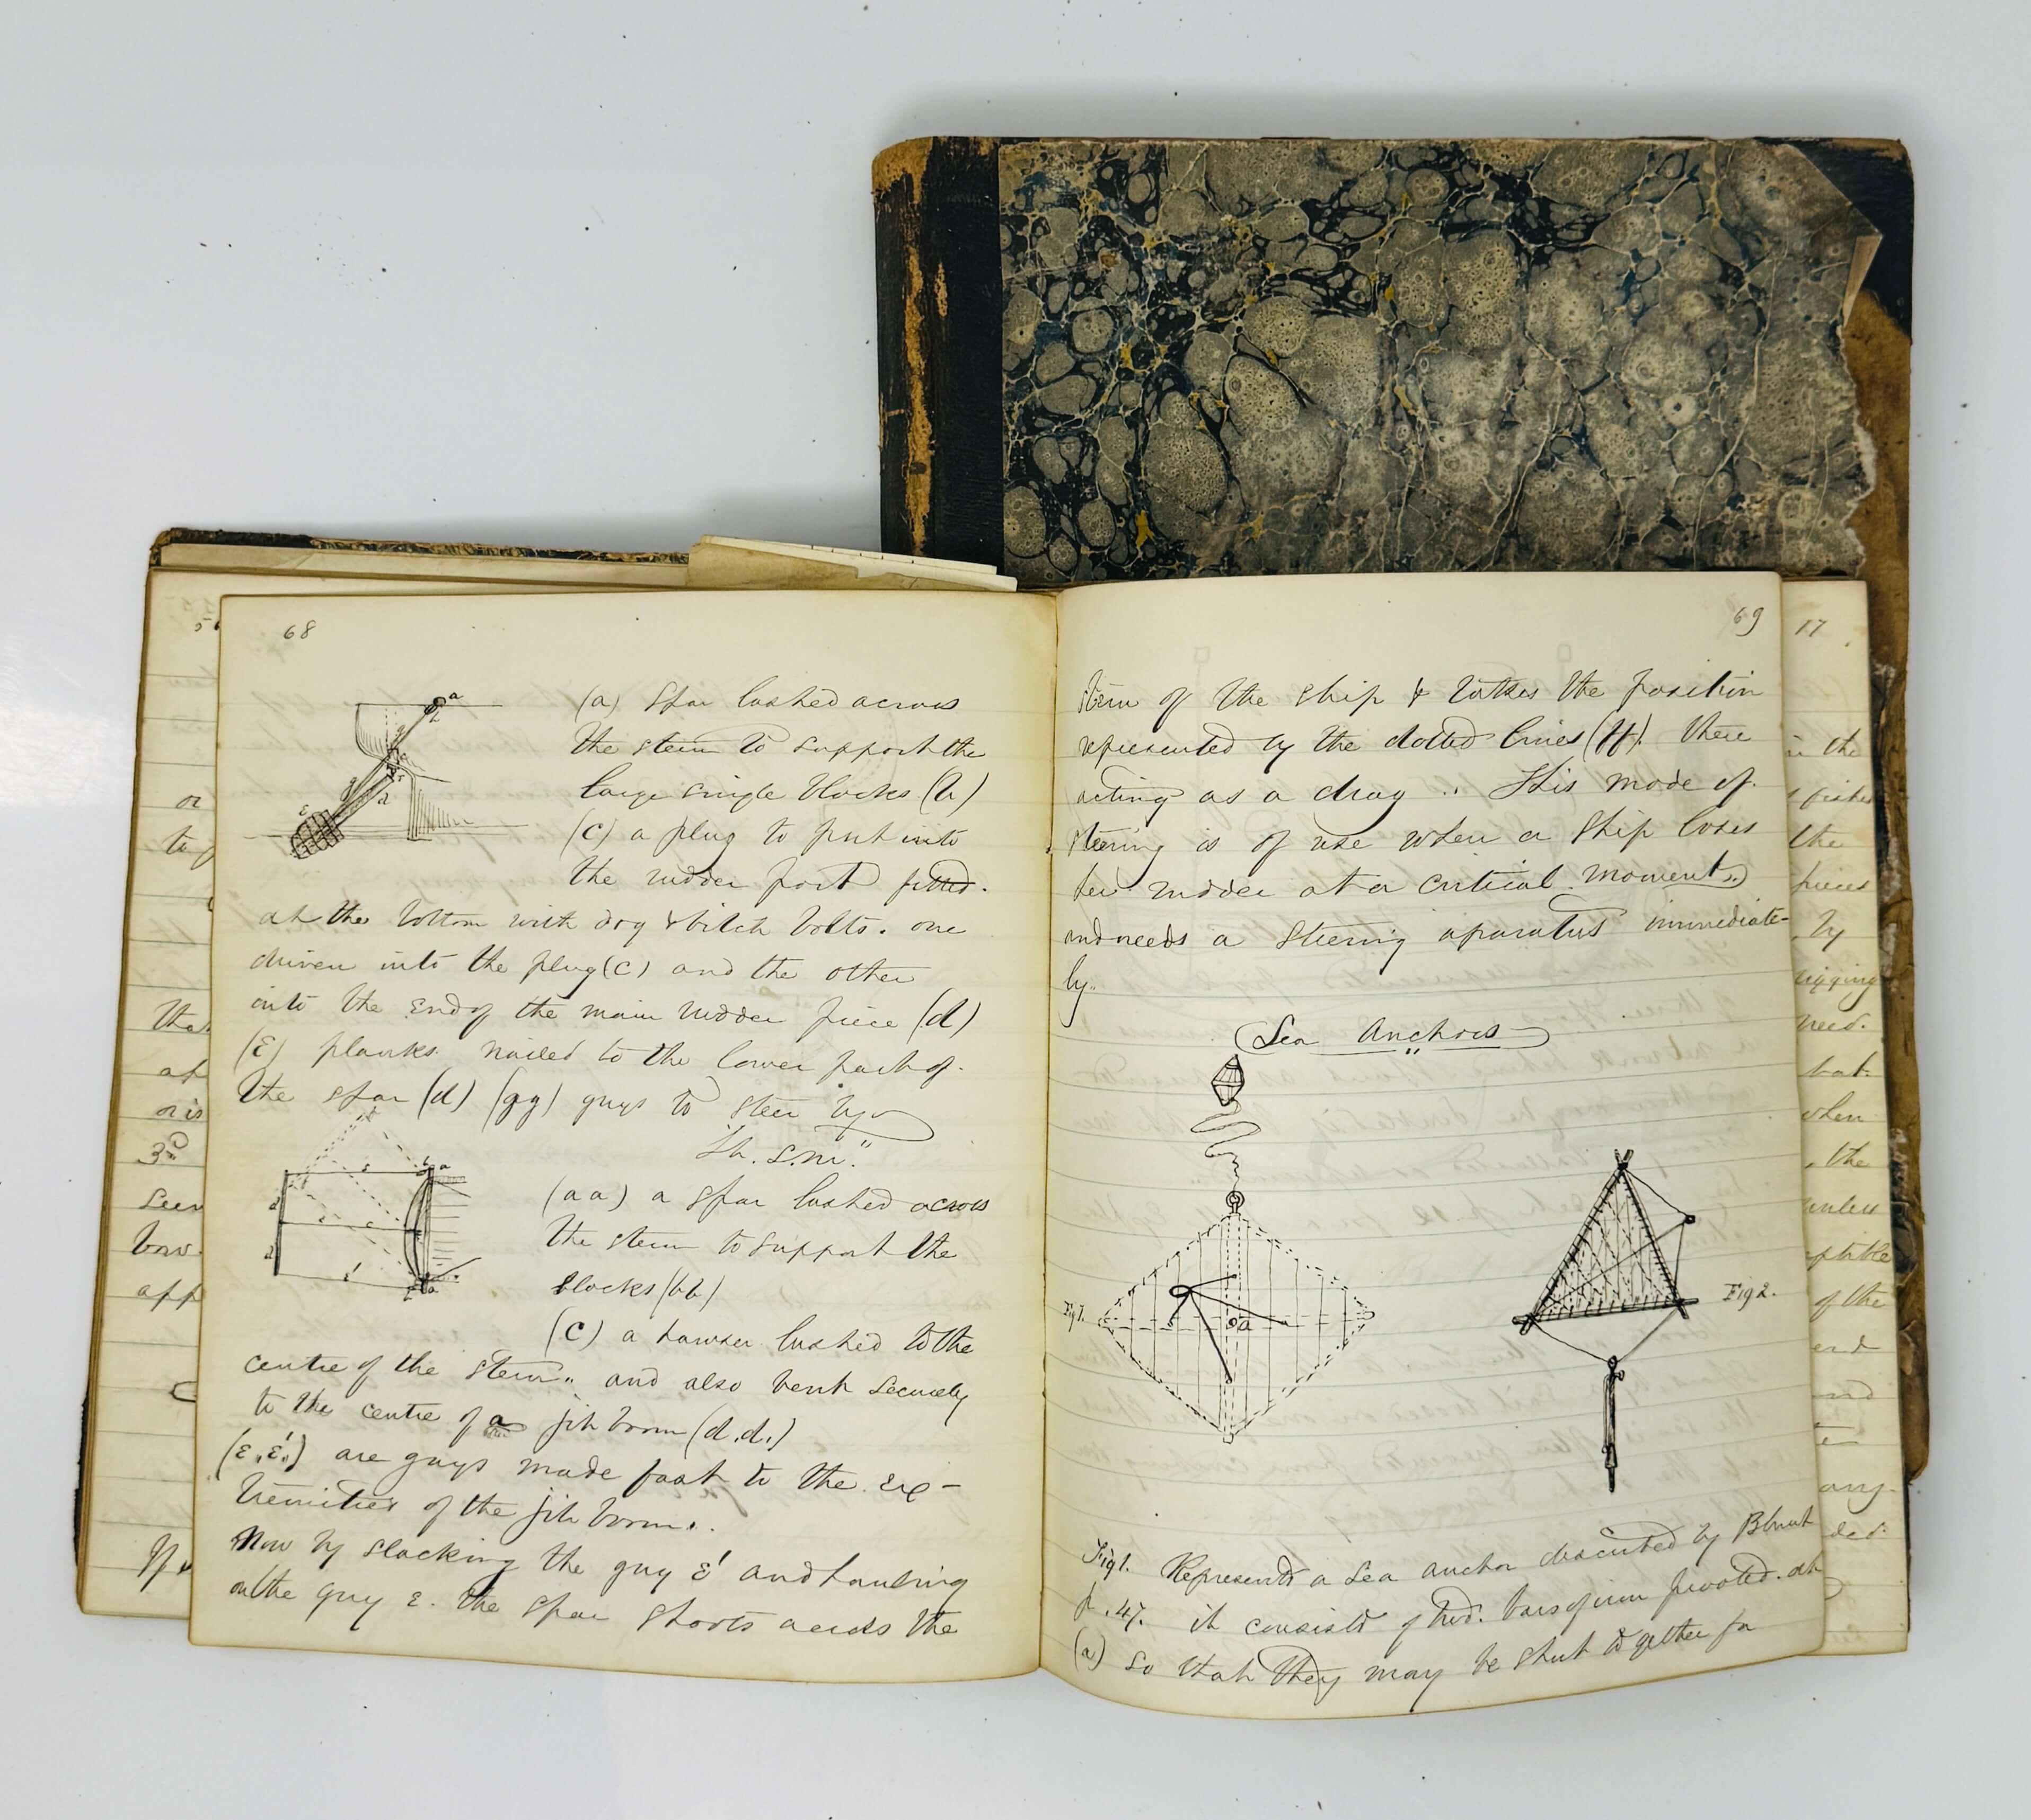 68
(a) spar lashed across
the stern to support the
large single blocks (b)
(c) a plug to put into
the rudder port fitted.
at the bottom with dog & bitch bolts. one
driven into the plug (c) and the other
into the end of the main rudder piece (d)
(E) planks nailed to the lower part of.
the spar (d) (gg) guys to steer by
a
b
d
g
E
(aa) a spar lashed across
the stern to support the
blocks (bb)
(c) a hawser lashed to the
centre of the stern,, and also bent securely
to the centre of a jib boom (d.d.)
(ε.ε'.) are guys made fast to the ex-
tremities of the jib boom..
Now by slacking the guy ε' and hauling
on the guy ε. the spar shoots across the
69
stern of the ship & takes the position
represented by the dotted lines (ff). there
acting as a drag .. This mode of.
steering is of use when a ship loses
her rudder at a critical moment,,
and needs a steering aparatus immediate-
ly.
Sea Anchors
Fig 1.
a
Fig 2.
Fig 1. Represents a sea anchor described by Blunt
p. 47. it consists of two. bars of iron pivoted. at
(a) so that they may be shut together for
17
in the
the
pieces
by
rigging
need.
but.
when
the
unless
of the
end
or
to
That
or is
3rd
app